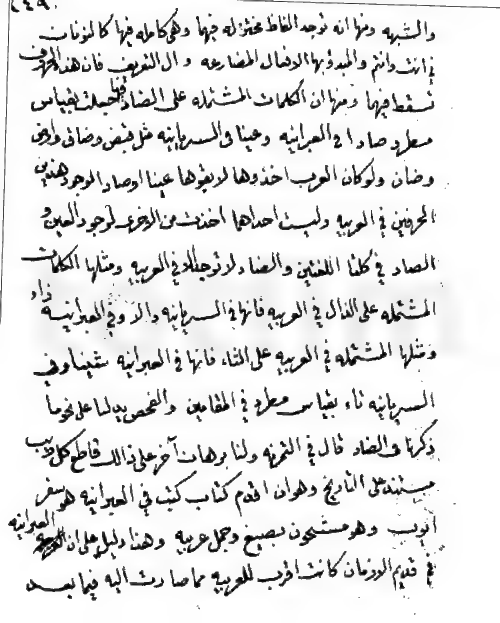 ٢٤٩.
والشبهه ومنها انه توجد الفاظ مختزله فيها وهي كامله فيها كالنونات
في انت وانتم والمبدؤ بها الافعال المضارعه و ال التعريف فان هذه الاحرف
تسقط فيهما ومنها ان الكلمات المشتمله على الضاد فينا جعلت بقياس
مطرد صادا في العبرانيه وعينا في السريانيه مثل قبض وضاق وارض
وضان ولو كان العرب اخذوها لابقوها عينا او صاد الوجود هذين
الحرفين في العربيه وليست احداهما اخذت من الاخرى لوجود العين و
الصاد في كلتا اللغتين والضاد لا توجد الا في العربيه ومثلها الكلمات
المشتمله على الذال في العربيه فانها في السريانيه دالا وفي العبرانيه زاء
ومثلها المشتمله في العربيه على الثاء فانها في العبرانيه شينا وفي
السريانيه تاء بقياس مطرد في المقامين والفحص يدلنا على نحو ما
ذكرنا في الضاد قال في التمرنه ولنا برهان آخر على ذالك قاطع كل ريب
مستند على التاريخ وهو ان اقدم كتاب كتب في العبرانيه هو سفر
ايوب وهو مشحون بصيغ وجمل عربيه وهذا دليل على ان العبرانيه
في قديم الازمان كانت اقرب للعربيه مما صارت اليه فيما بعد